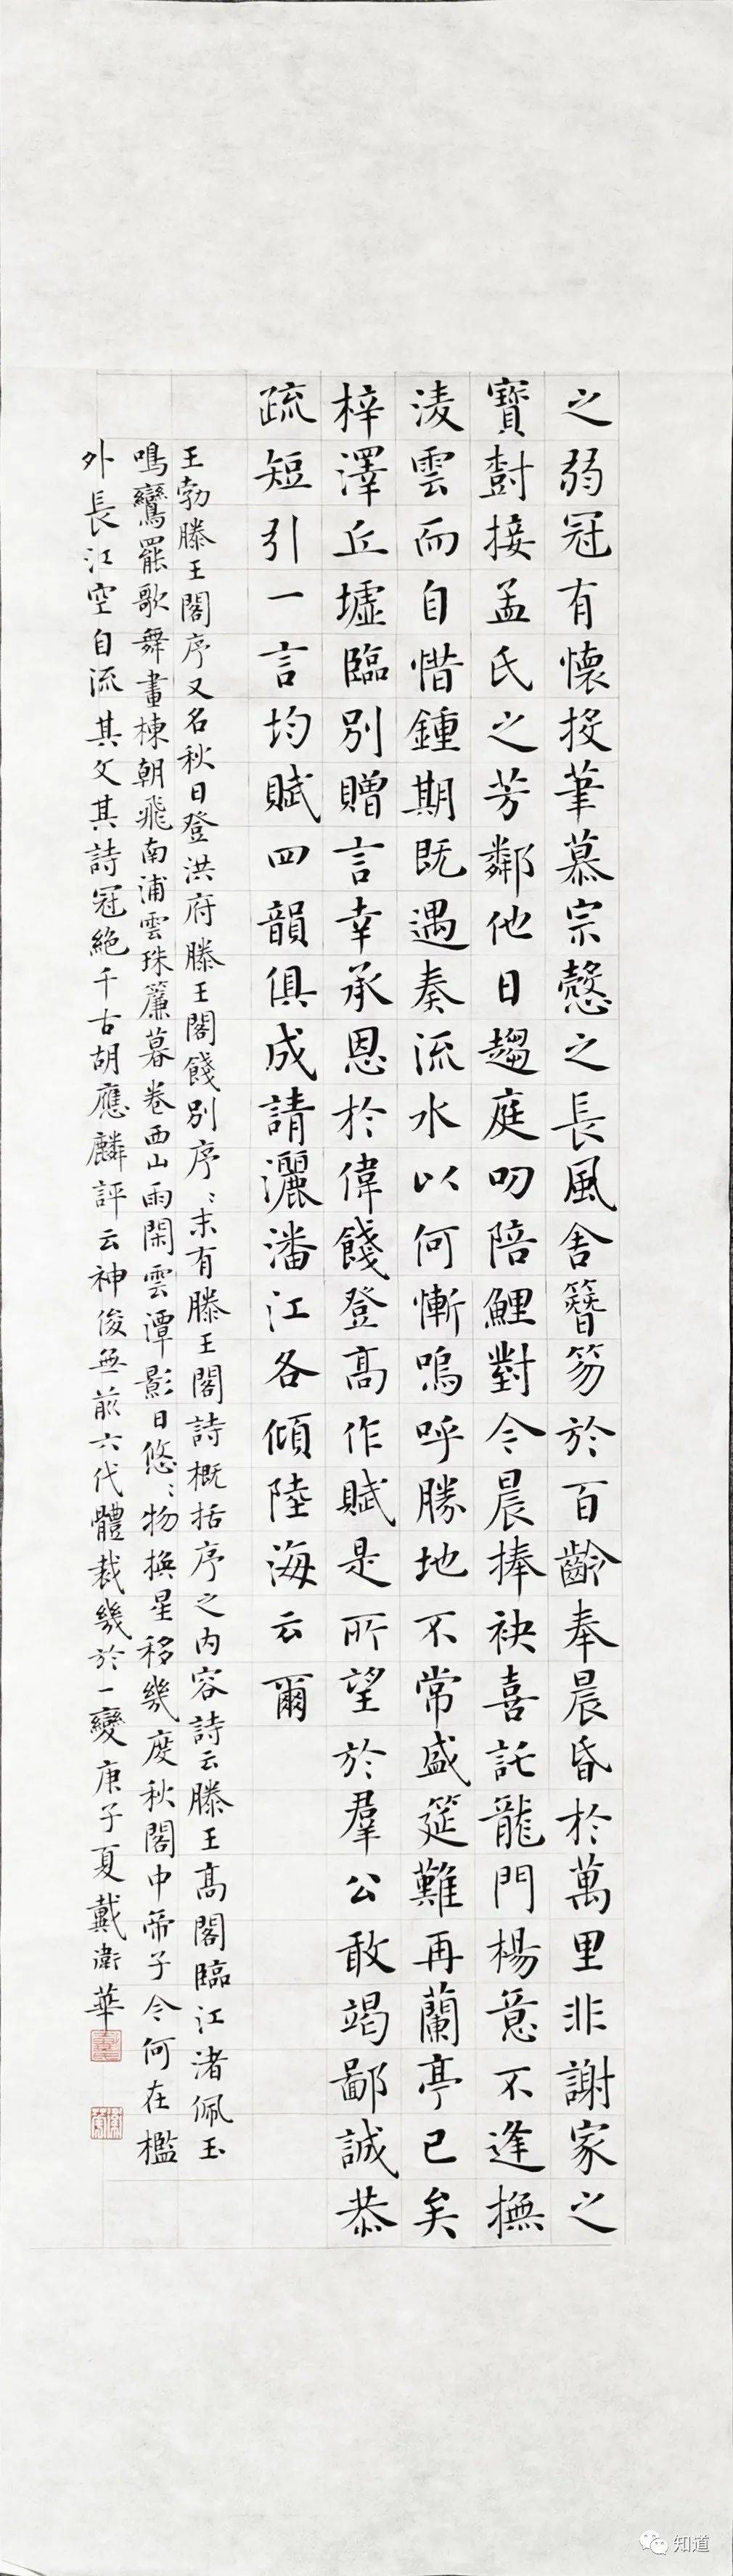 之弱冠有懷投筆慕宗慤之長風舍簪笏於百齡奉晨昏於萬里非謝家之
寶樹接孟氏之芳鄰他日趨庭叨陪鯉對今晨捧袂喜託龍門楊意不逢撫
淩雲而自惜鍾期既遇奏流水以何慚嗚呼勝地不常盛筵難再蘭亭已矣
梓澤丘墟臨別贈言幸承恩於偉餞登高作賦是所望於羣公敢竭鄙誠恭
疏短引一言均賦四韻俱成請灑潘江各傾陸海云爾
王勃滕王閣序又名秋日登洪府滕王閣餞別序〻末有滕王閣詩概括序之内容詩云滕王高閣臨江渚佩玉
鳴鸞罷歌舞畫棟朝飛南浦雲珠簾暮卷西山雨閑雲潭影日悠〻物換星移幾度秋閣中帝子今何在檻
外長江空自流其文其詩冠絶千古胡應麟評云神俊無前六代體裁幾於一變庚子夏戴衛華
知道